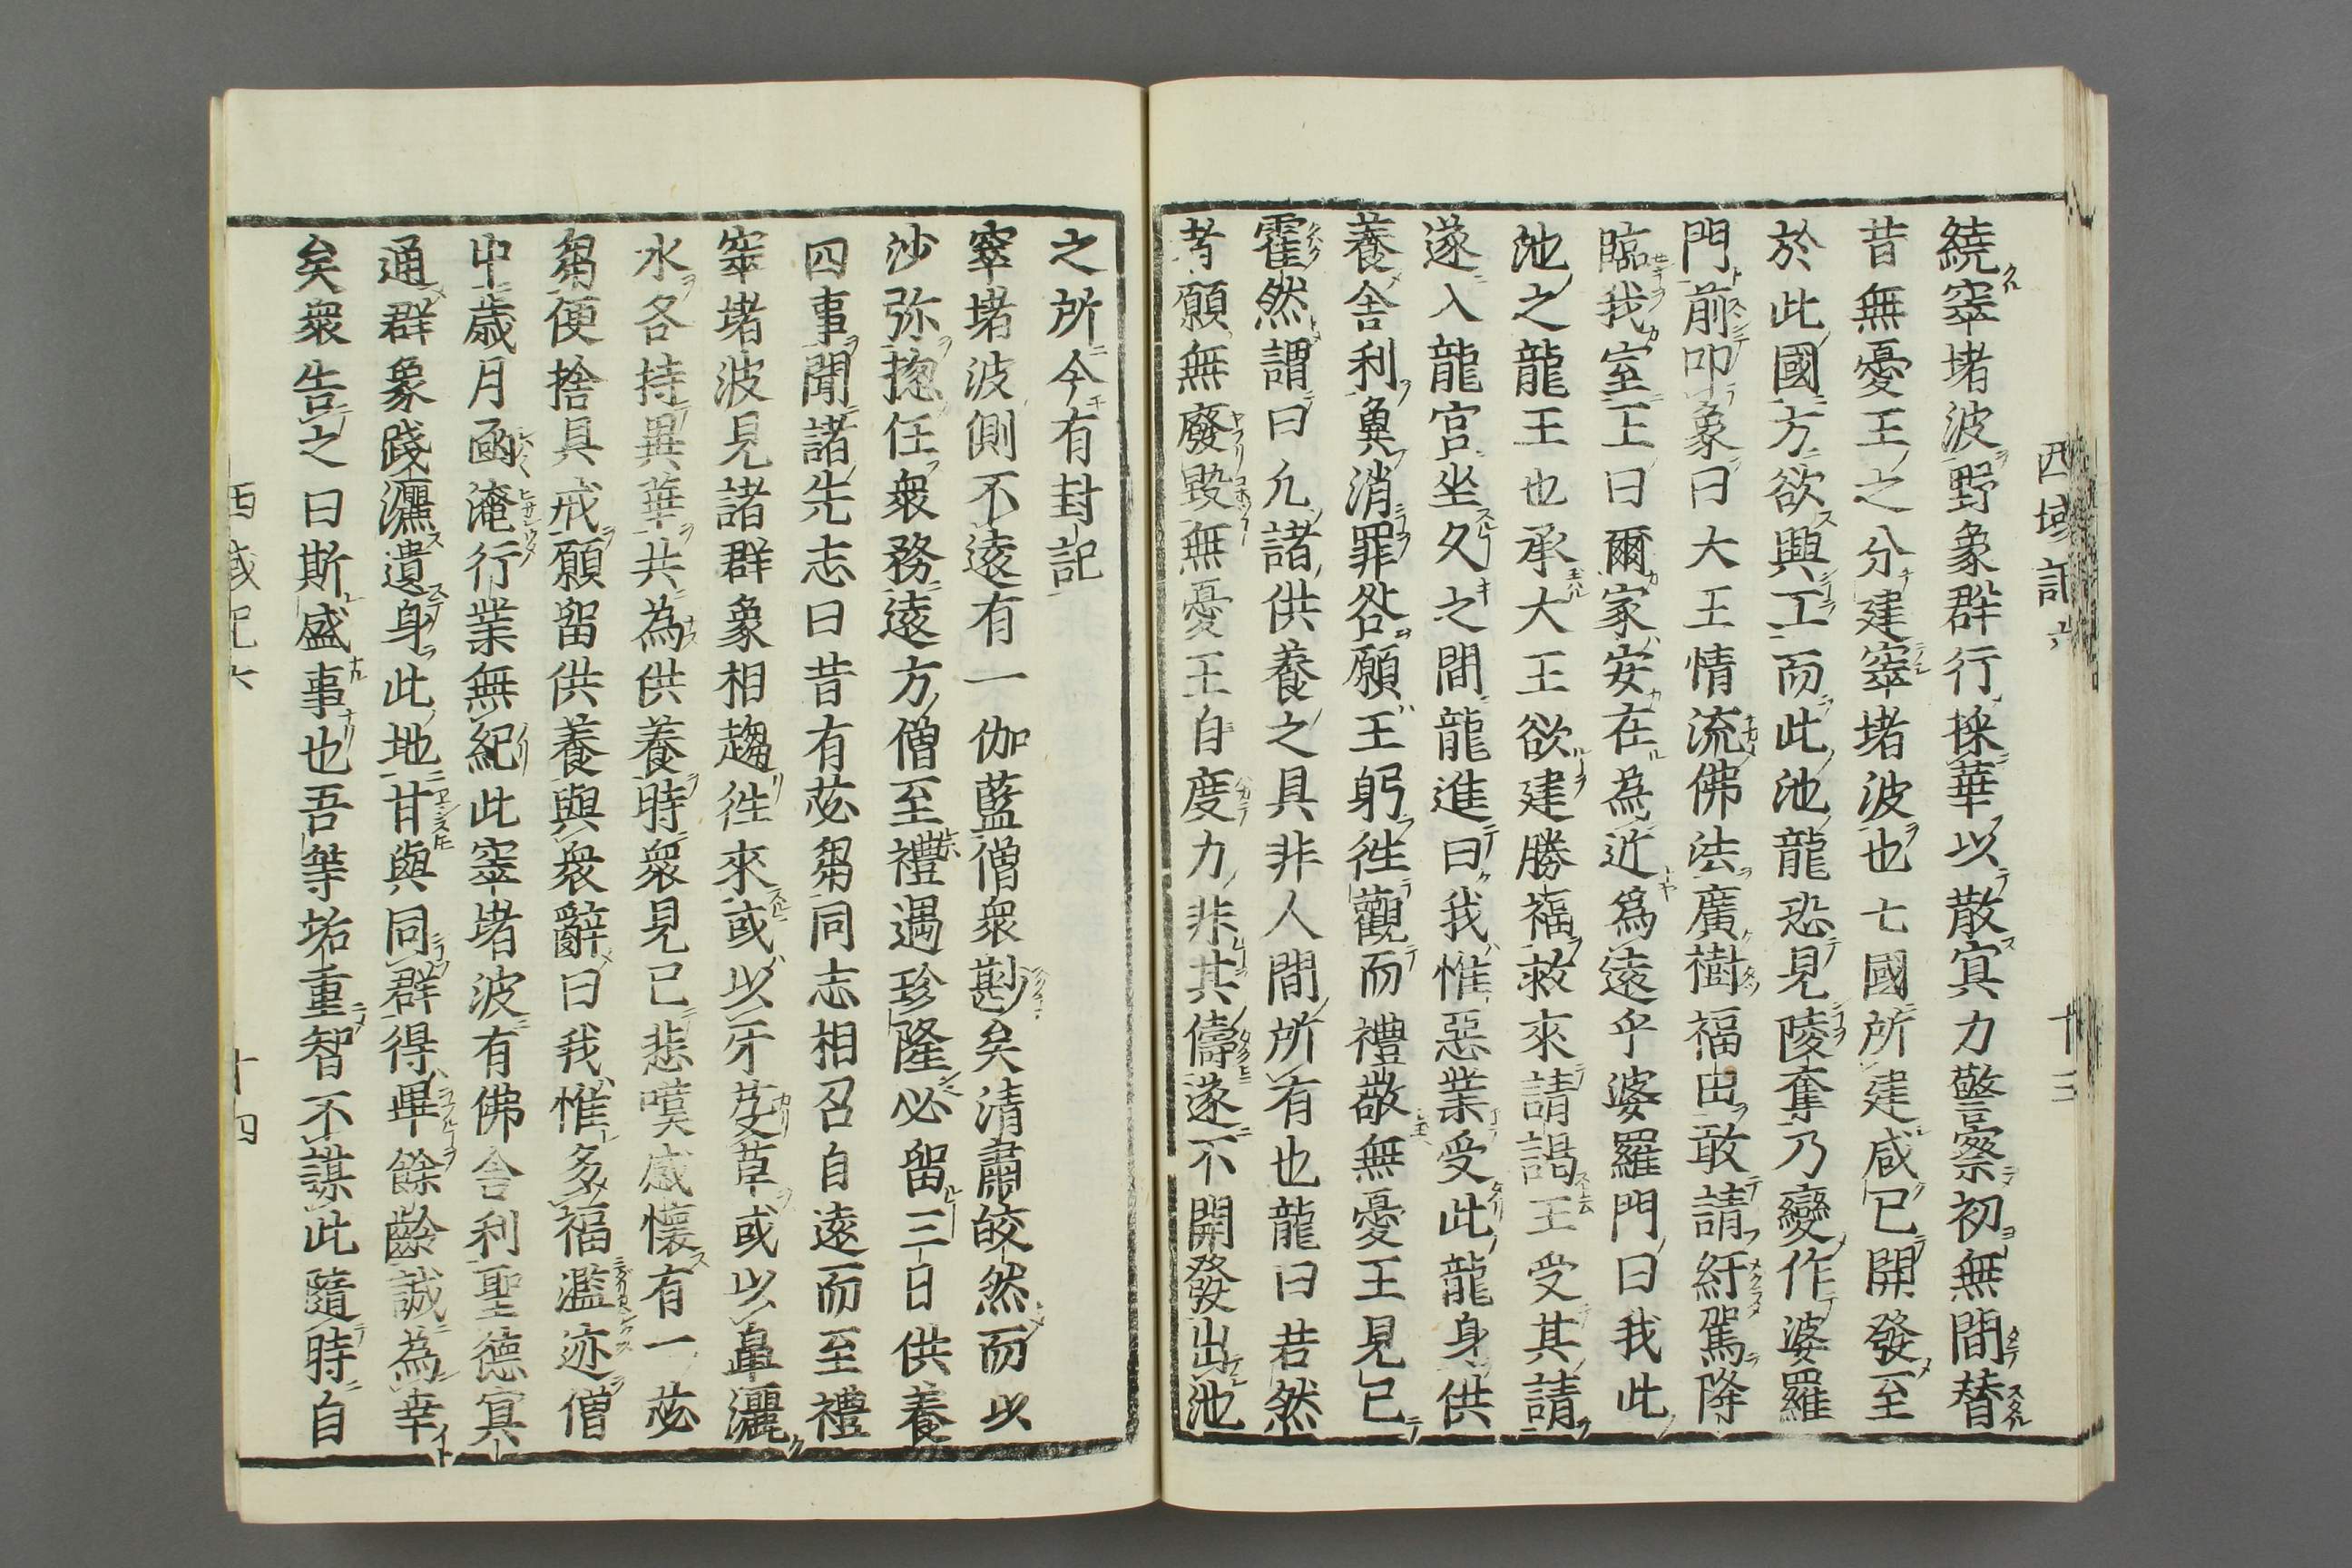 西域記六　十三
繞窣堵波野象群行採華以散寘力警察初無間替
昔無憂王之分建窣堵波也七國所建咸已開發至
於此國方欲興工而此池龍恐見陵奪乃變作婆羅
門前叩象曰大王情流佛法廣樹福田敢請紆駕降
臨我室王曰爾家安在為近爲遠乎婆羅門曰我此
池之龍王也承大王欲建勝福敢來請謁王受其請
遂入龍宮坐久之間龍進曰我惟惡業受此龍身供
養舍利冀消罪咎願王躬徃觀而禮敬無憂王見已
霍然謂曰凡諸供養之具非人間所有也龍曰若然
者願無廢毀無憂王自度力非其儔遂不開發出池
之所今有封記
窣堵波側不遠有一伽藍僧衆尠矣清肅皎然而以
沙弥揔任衆務遠方僧至禮遇珍隆必留三日供養
四事聞諸先志曰昔有苾芻同志相召自遠而至禮
窣堵波見諸群象相趨徃來或以牙芟草或以鼻灑
水各持異華共為供養時衆見已悲嘆感懷有一苾
芻便捨具戒願留供養與衆辭曰我惟多福濫迹僧
中歲月亟淹行業無紀此窣堵波有佛舍利聖德寘
通群象踐灑遺身此地甘與同群得畢餘齡誠為幸
矣衆告之曰斯盛事也吾等垢重智不謀此隨時自
西域記六　十四